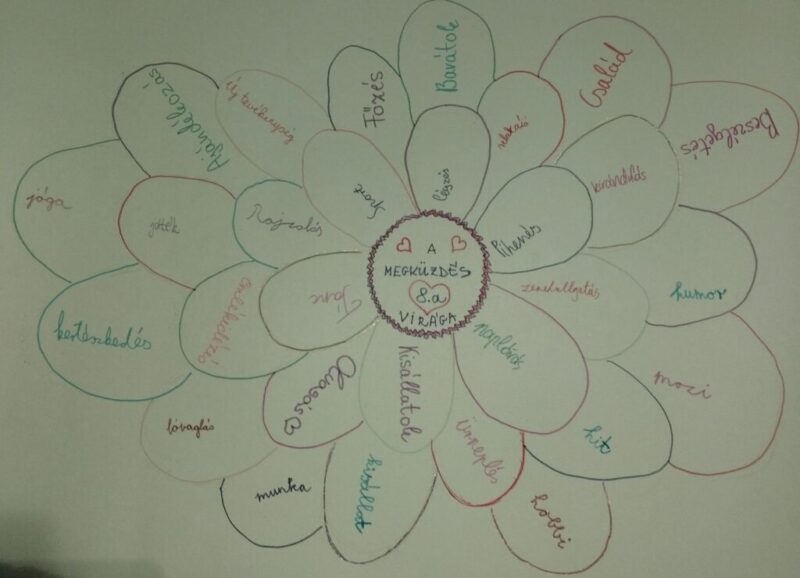 A
MEGKÜZDÉS
8.a
VIRÁGA
légzés
Pihenés
zenehallgatás
naplóírás
Kisállatok
Olvasás
Tánc
Rajzolás
sport
Főzés
Barátok
Család
kirándulás
Beszélgetés
humor
mozi
hit
hobbi
ünneplés
munka
lovaglás
kertészkedés
játék
jóga
Ajándékozás
új tevékenység